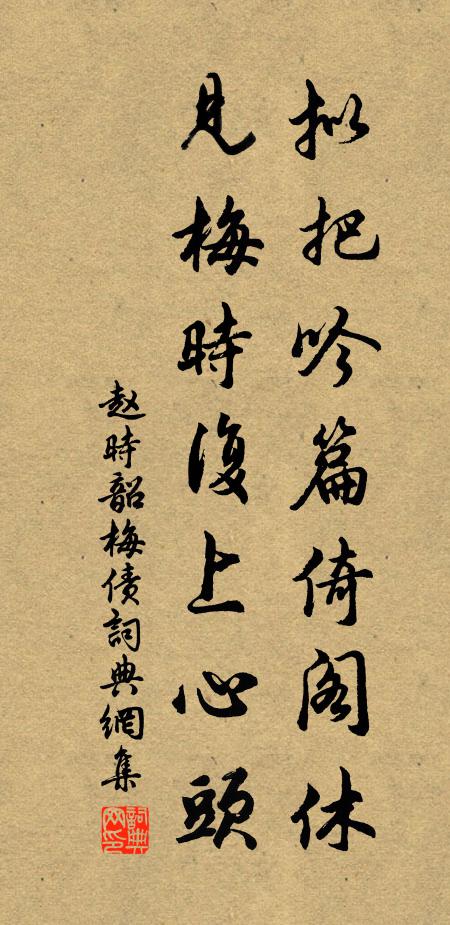 拟把吟篇倚阁休
見梅時復上心頭
赵時韶梅债詞典網集
詞典网印